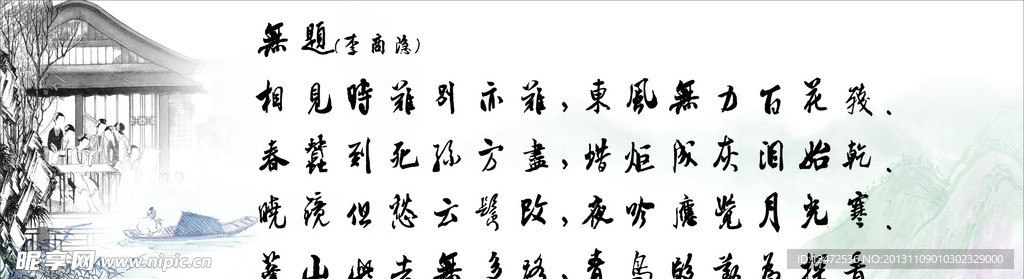 無題(李商隐)
相見時難別亦難,東風無力百花殘.
春蠶到死絲方盡,蜡炬成灰泪始乾.
曉鏡但愁云鬢改,夜吟應覺月光寒.
蓬山此去無多路,青鳥殷勤為探看
昵享网 www.nipic.cn
www.nipic.com
NO:20131109010302329000